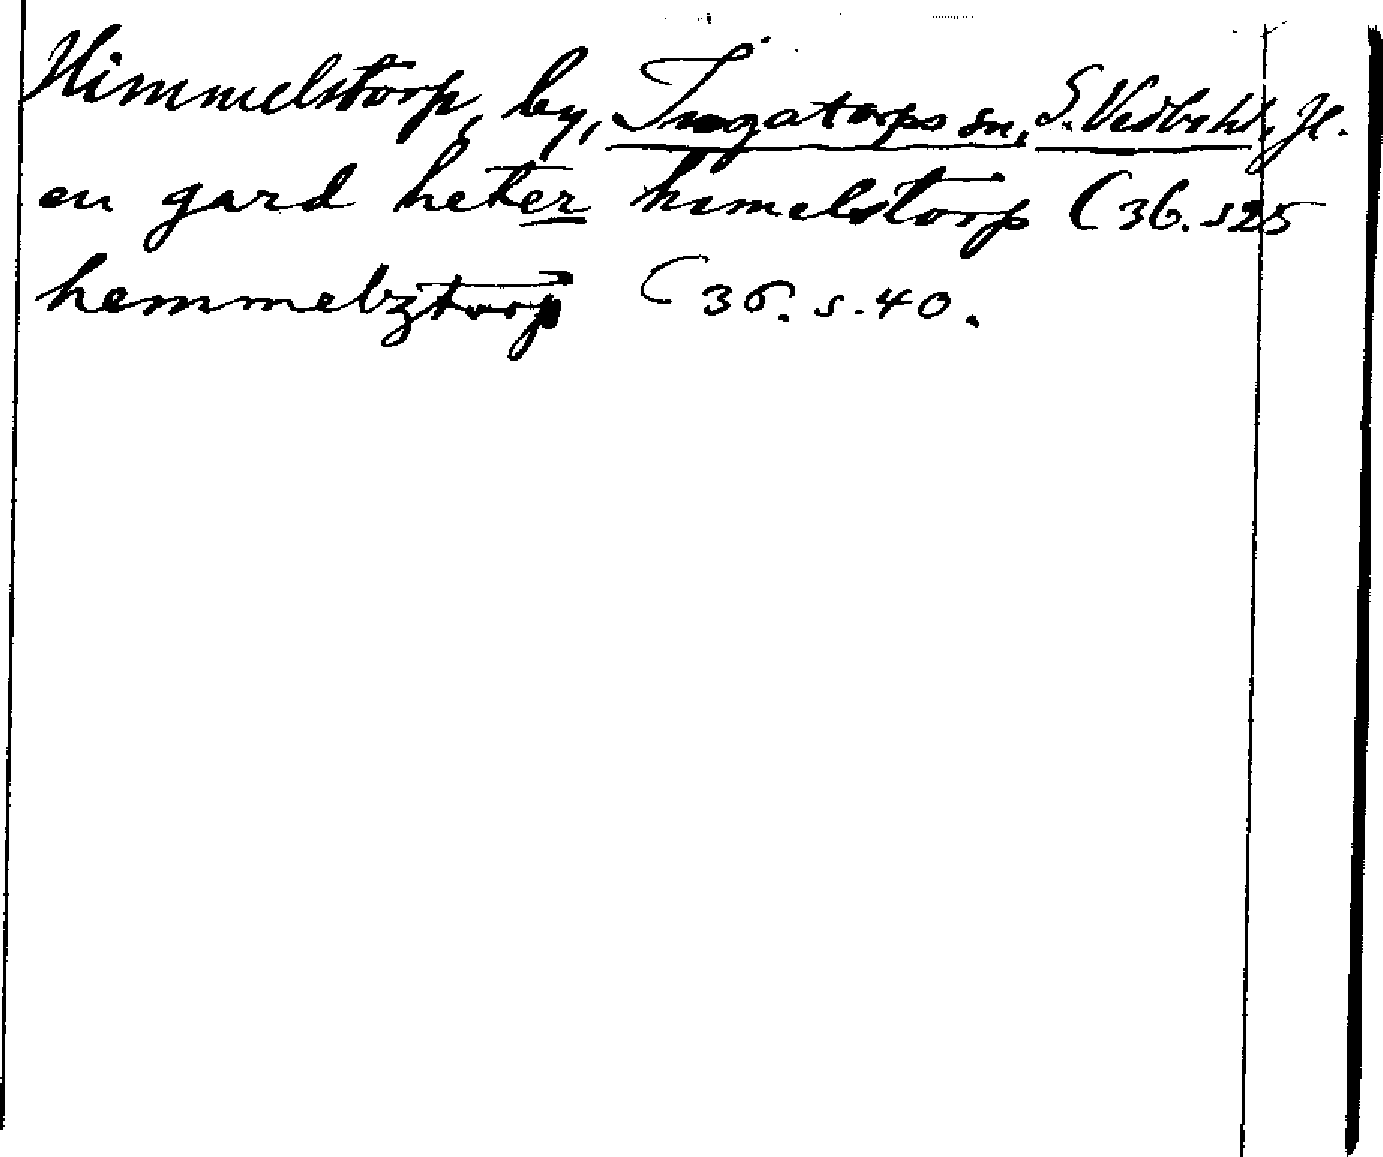 Himmelstorp, by, Ingatorps sn, S. Vedbo hd, Jl.
en gard heter himelstorp C 36. s 25
hemmelztorp C 36. s. 40.